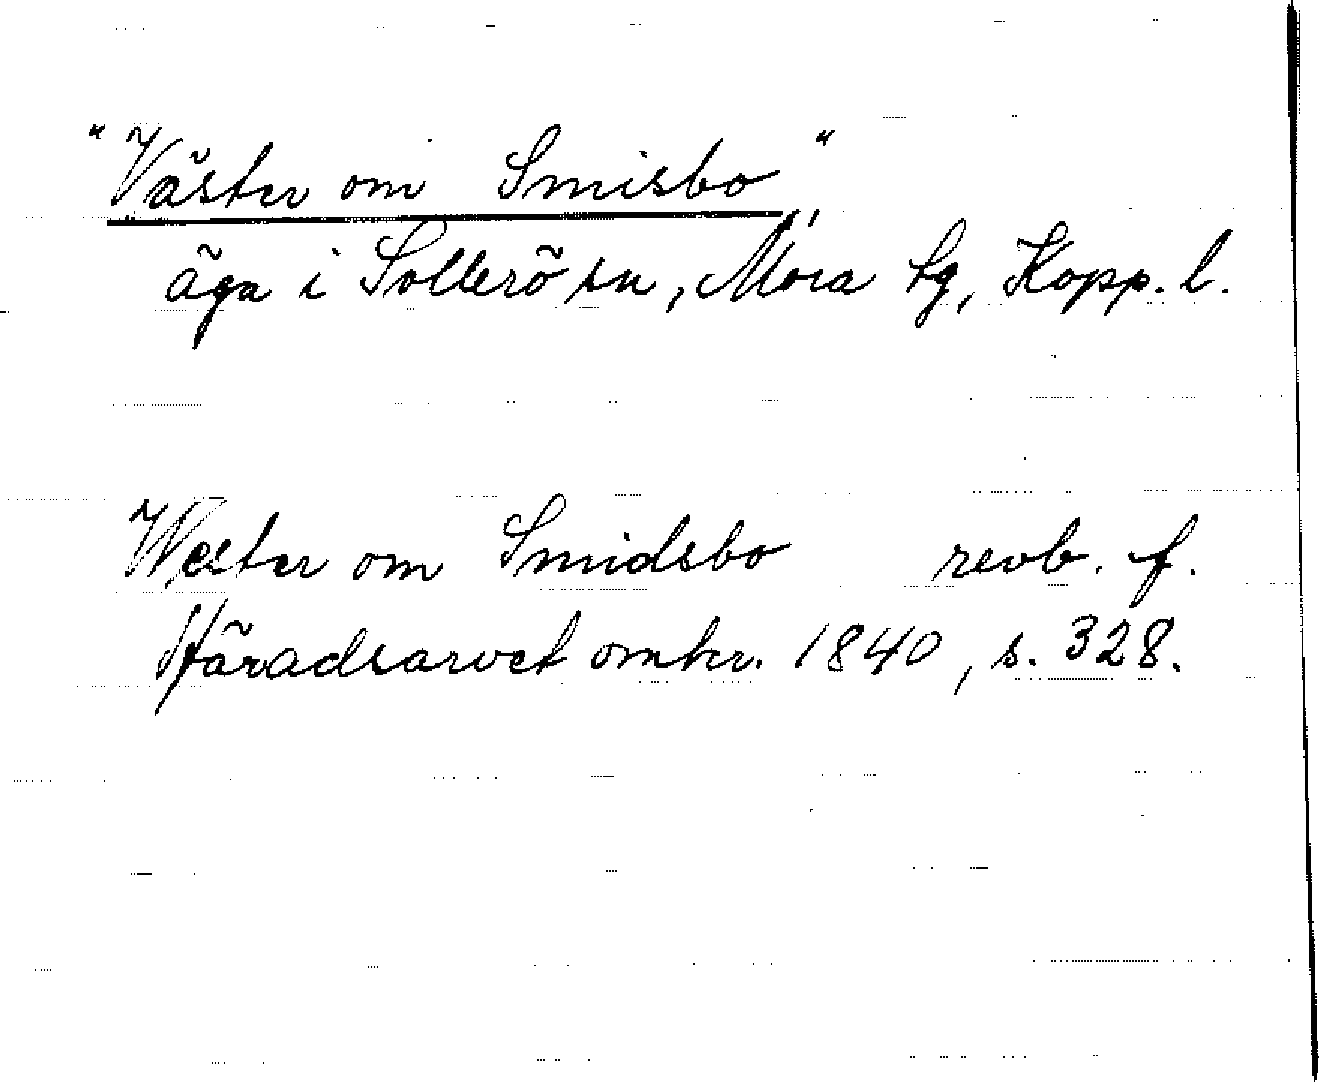 "Väster om Smisbo"
äga i Sollerö sn, Mora tg, Kopp. l.
Wester om Smidsbo revb. f.
Häradsarvet omkr. 1840, s. 328.